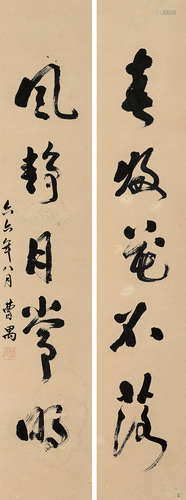 春放花不落
风静月常明
六六年八月 曹禺